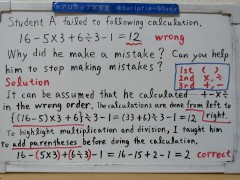 Student A failed to following calculation.
16-5×3+6÷3-1=12 wrong
Why did he make a mistake? Can you help
him to stop making mistakes?
1st ( )
2nd ×,÷
3rd +,-
Solution
It can be assumed that he calculated +-×÷
in the wrong order. The calculations are done from left to
{(16-5)×3+6}÷3-1=(33+6)÷3-1=12 right.
To highlight multiplication and division, I taught him
to add parentheses before doing the calculation.
16-(5×3)+(6÷3)-1=16-15+2-1=2 correct